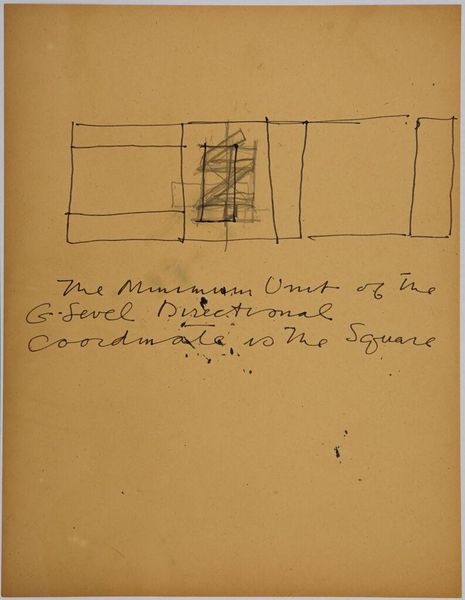 The Minimum Unit of the
G-Level Directional
Coordinate is the Square